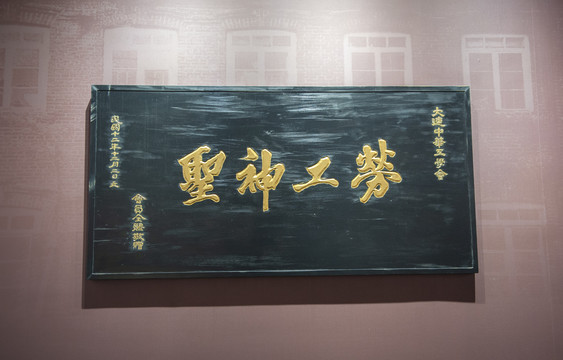 大連中華工學會
勞工神聖
會員全體敬贈
民國十二年十二月二日立